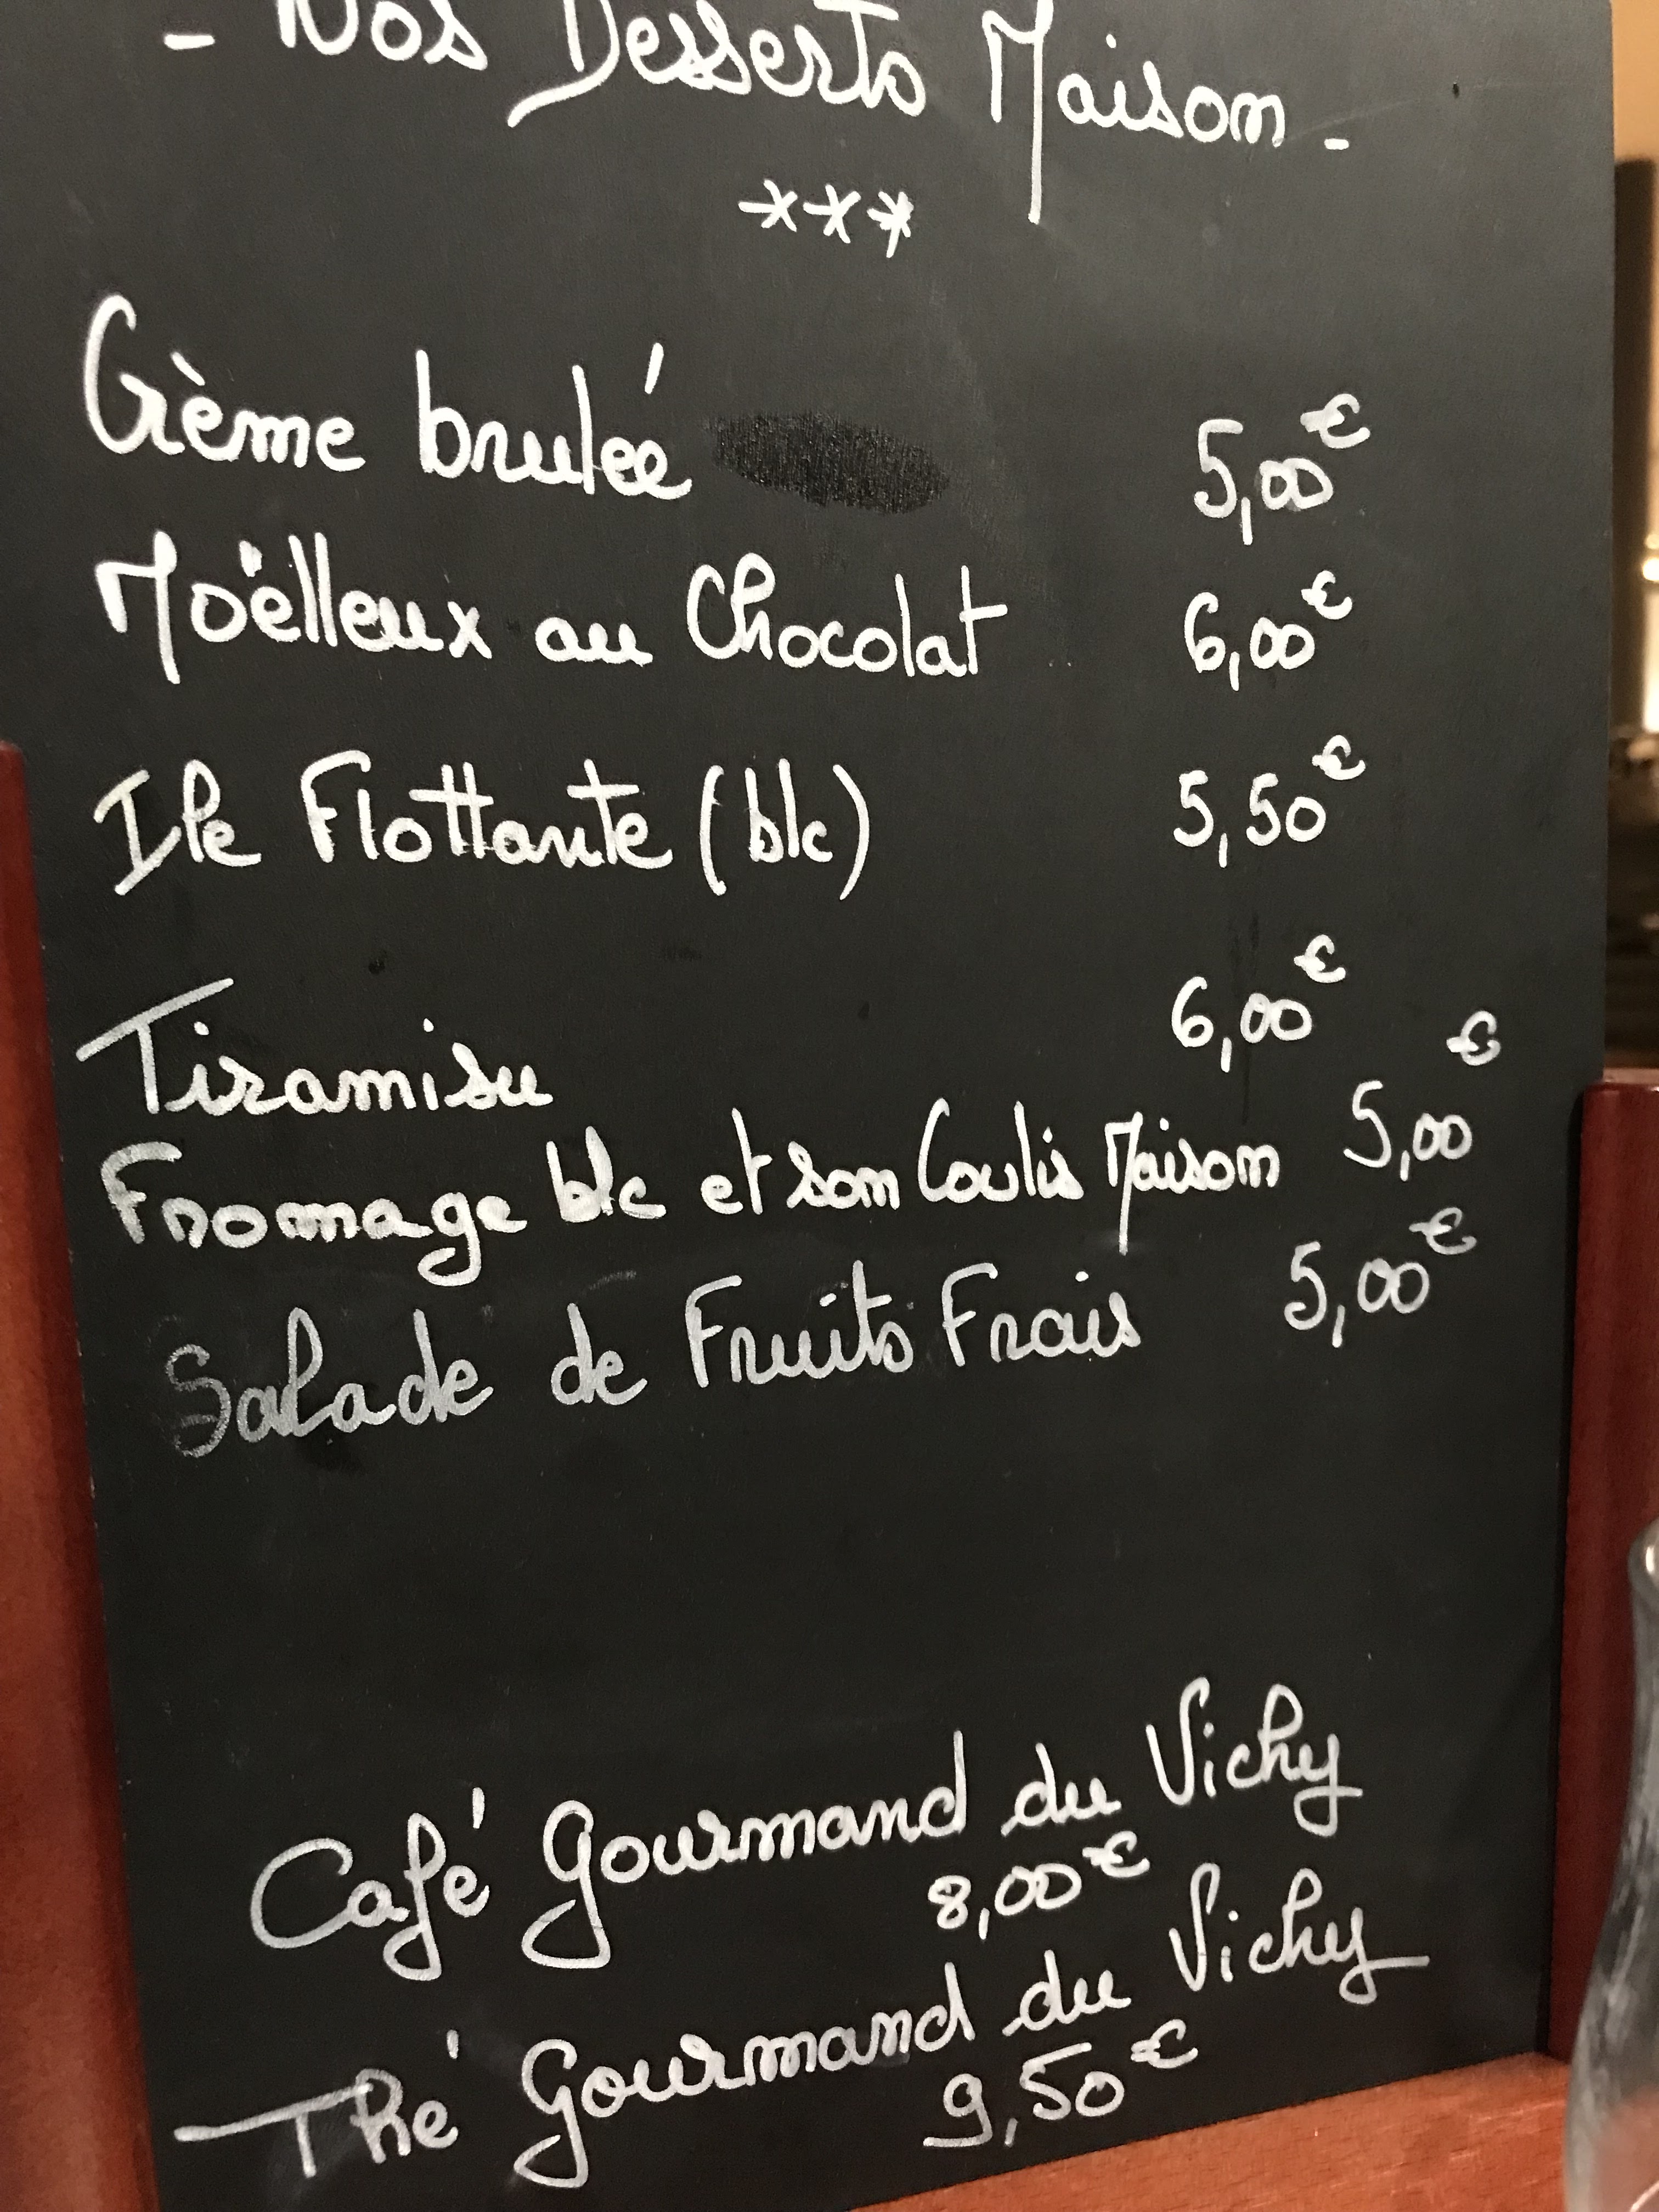 - Nos Desserts Maison -
***
Crème brulée 5,00€
Moëlleux au Chocolat 6,00€
Ile Flottante (blc) 5,50€
Tiramisu 6,00€
Fromage blc et son Coulis Maison 5,00€
Salade de Fruits Frais 5,00€
Café Gourmand du Vichy
8,00€
Thé Gourmand du Vichy
9,50€